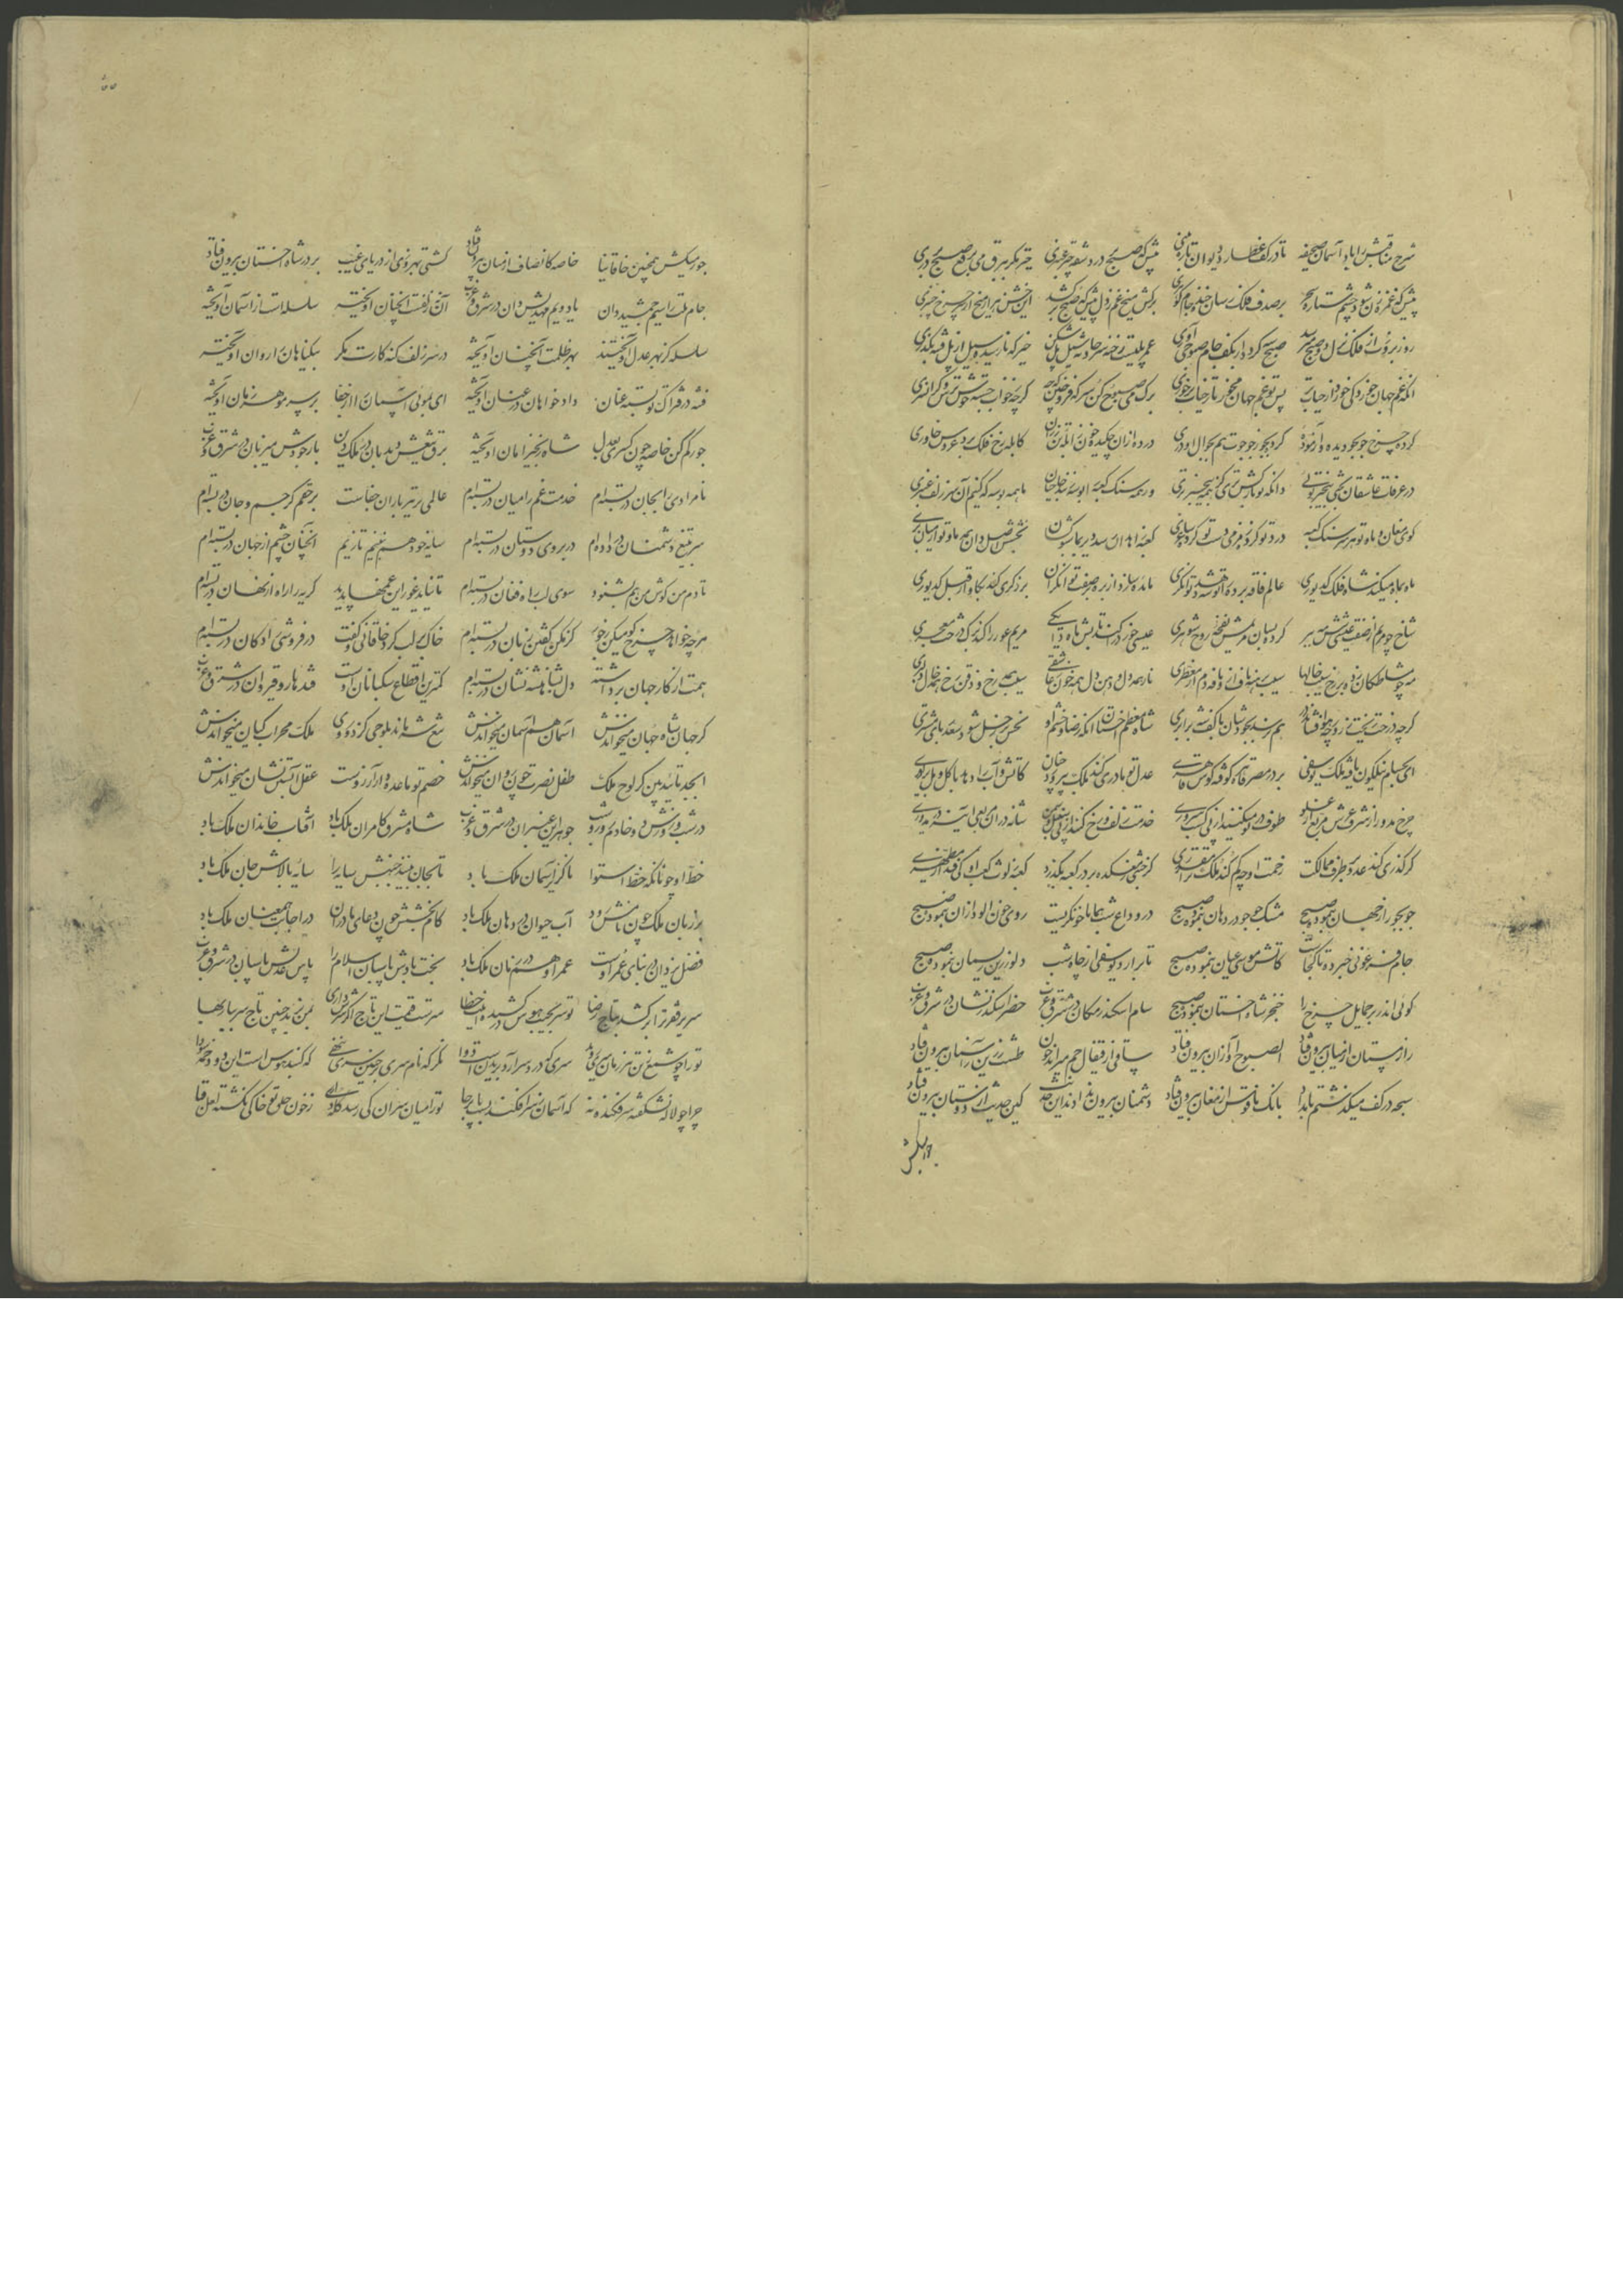 شرح مناقبش را باد آسمان صحیفه تا در کف عطارد دیوان تازه بینی پیش که صبح بردرد شقه چتر عنبری خیز مگر ببرق می برقع صبح بردری
پیش که غمزه زن شود چشم ستاره سحر بر صدف فلک رسان خنده جام گوهری برکش میخ غم ز دل پیش که صبح برکشد این خشن هزار میخ از سر چرخ چنبری
صبح کرد بکف جام صبوحی
انکه غم جهان خورد کی خورد از حیات بر پس تو غم جهان مخور تا ز حیات برخوری برک می صبوح کن کرچه خواب جسته خوش
کرد چرخ جو بجو دیده و آزموده کردیجو ز جو جوت هم بجوال او دری درده ازان چکیده خون ز آبله تن رزان کابله رخ فلک برد عروس خاوری
در عرفات عاشقان بختی بیخبر توئی وانکه تو بارکش تری کز همه بیخبرتری ورهمه سنک کعبه را بوسه زنند حاجیان ما همه بوسه که کنیم آن سر زلف عنبری
کوی مغان و ما و تو هر سر سنک کعبه درد تو کرده زمزمی دست تو کرده ساغری
ماه بماه میکند شاه فلک کدیوری عالم فاقه برده را توشه دهد توانکری مائده سازد از بره بر صفت توانکران برزکری کند بکاو از قبل کدیوری
شاخ چو مریم از صفت عیسی شش مهه ببر کرده بسان مریمش نفخه روح شوهری عیسی خرد را کند تابش ماه دایکی مریم عور را کند برک درخت معجری
مه چو مشاطکان زده بر رخ سیب خالها سیب برهنه ناف را نافه دم از معطری نار همه دل و دهن دل همه خون عاشقی سیب همه رخ و ذقن رخ همه خال دلبری
کرچه درخت ریخت زر ورچه هوا فشاند در هم نرسد بجودشان با کف شه برابری شاه معظم اخستان انکه رضا و خشم او نحس زحل شود و سعد دهد بمشتری
ای بحسام نیلکون یافته ملک یوسفی بر در مصر و قاهره کوفته کوس قاهری عدل تو مادری کند ملک بپرورد چنان کاتش و آب را دهد با کل و مل برابری
چرخ مدور از شرف عرش مربع از علو طوف در تو میکنند از پی کسب سروری خدمت زلف و رخ کند از پی سنبل و سمن شانه در ان مربعی آینه در مدوری
کر کذری کند عدو بطرف ممالکت زحمت او چه کم کند ملک تو را ز مقرری کر خنثی شکسته بر در کعبه بگذرد کعبه ز لوث کعب او کی فتد از مطهری
جو بجو راز جهان بنمود صبح مشک جو جو در دهان بنمود صبح در وداع شب همانا خون کریست روی خون آلود ازان بنمود صبح
جام فرعونی خبر ده تا کجاست کاتش موسی عیان بنمود صبح تا برآرد یوسفی از چاه شب دلو زرین ریسمان بنمود صبح
کوئی اندر بر حمایل چرخ را خنجر شاه اخستان بنمود صبح سام اسکندر مکان در شرق و غرب خضر اسکندر نشان در شرق و غرب
راز مستان از میان بیرون فتاد الصبوح آواز ازان بیرون فتاد ساقی از قیفال خم میراند خون طشت زرین ز آسمان بیرون فتاد
سبحه در کف میکذشتم بامداد بانک ناقوس از مغان بیرون فتاد دشمنان بیرون ندادند این حدیث کین حدیث از دوستان بیرون فتاد
جور میکش همچنین خاقانیا خاصه کانصاف از میان بیرون فتاد کشتی بهروزی از دریای غیب بر در شاه اخستان بیرون فتاد
جام ملت را سیم جمشید دان یا دویم مهدیش دان در شرق و غرب آن زلفت آنچنان آویخته سلسله است از آسمان آویخته
سلسله کز بهر عدل آویختند بهر ظلمت آنچنان آویخته در سر زلف کنه کارت نکر بیکناهان را روان آویخته
فتنه در فتراک تو بسته عنان دادخواهان در عنان آویخته ای بموئی آسمان را از جفا بر سر مو هر زمان آویخته
جور کم کن خاصه چون کسری بعدل شاه زنجیر امان آویخته برق تیغش دیدبان در ملک دین بارجودش میزبان در شرق و غرب
نامرادی را بجان دربسته ام خدمت غم را میان دربسته ام عالمی بر تیر باران جفاست برحقم کر جسم و جان دربسته ام
سر بتیغ دشمنان درداده ام در بروی دوستان دربسته ام سایه خود هم نبینم تا زیم انچنان چشم از جهان دربسته ام
تا دم من کوش من هم نشنود سوی لب راه فغان دربسته ام تا نباید غور این غمها پدید کریه را راه از نهان دربسته ام
هرچه خواهد چرخ کو میکن بجور کز مکن کفتن زبان دربسته ام خاک بر لب کرد خاقانی و کفت در فروشی را دکان دربسته ام
همت از کار جهان برداشته دل بشاهنشه نشان دربسته ام کمترین اقطاع سکبانان اوست قندهار و قیروان در شرق و غرب
کر جهان شاه جهان میخواندش آسمان هم آسمان میخواندش ملک محراب کیان میخواندش
ابجد تایید بین کز لوح ملک طفل نصرت چون روان میخواندش خصم تو ما عدو از آرزوست عقل آتش نشان میخواندش
در شب و روزش دو خادم روز و شب جوهر این عنبر آن در شرق و غرب شاه مشرق کامران ملک باد آفتاب خاندان ملک باد
خط او چونانکه خط استوا ناگزیر آسمان ملک باد تا بجان بینند جنبش سایه را سایه بالاش جان ملک باد
بر زبان ملک چون نامش رود آب حیوان در دهان ملک باد کام بخشش چون دعای مادران در اجابت همعنان ملک باد
فضل یزدان در بنای عمر اوست عمر او هم در زمان ملک باد بخت بادش پاسبان اسلام را پاس عدلش پاسبان در شرق و غرب
سریر فقر ترا سر کشد بتاج رضا تو سر بجیب هوس درکشیده اینت خطا سرست قیمت این تاج اگر سرش داری بمن یزید چنین تاج سر بیار بها
ترا چو شمع ز تن هر زمان سری روید سری که دردسر آرد بریدنست دوا نکر که نام سری بر چنین سری ننهی که کنبد هوس است این و دخمه سودا
چرا چو لاله نشکفته سرفکنده نه که آسمان ز سرافکندیست پا برجا ترا میان سران کی رسد کلهداری ز خون حلق تو خاکی نکشته لعل قبا